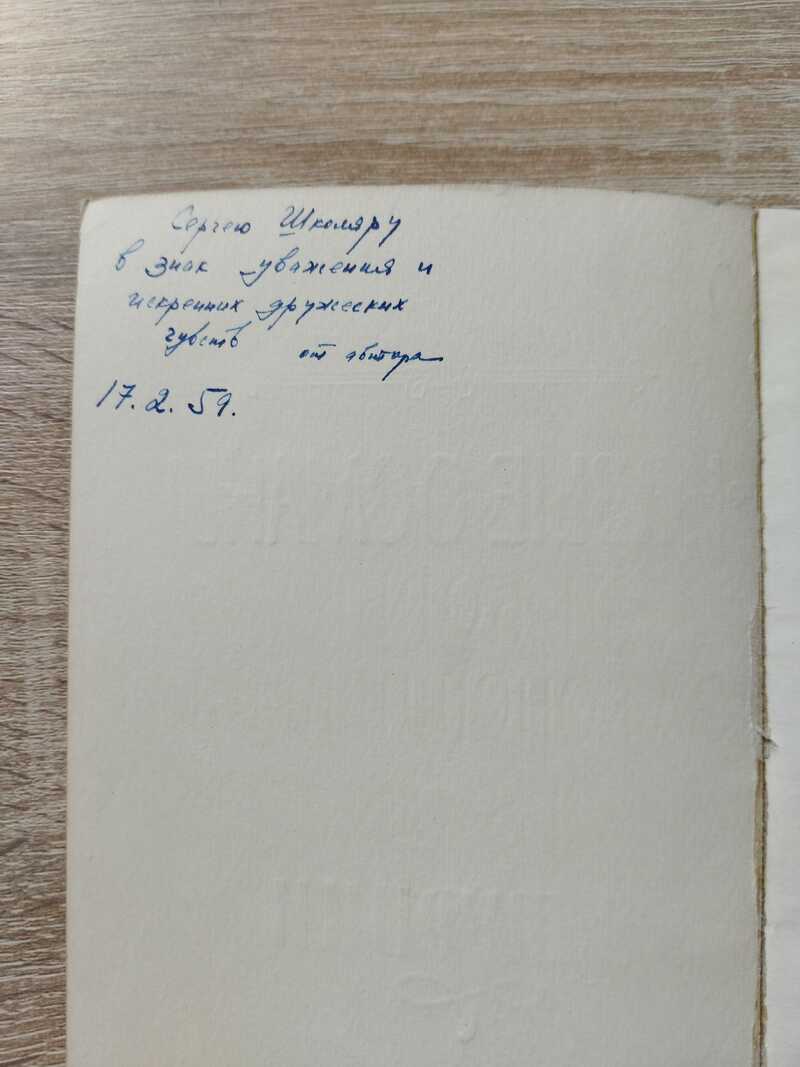 Сергею Школяру
в знак уважения и
искренних дружеских
чувств от автора
17.2.59.